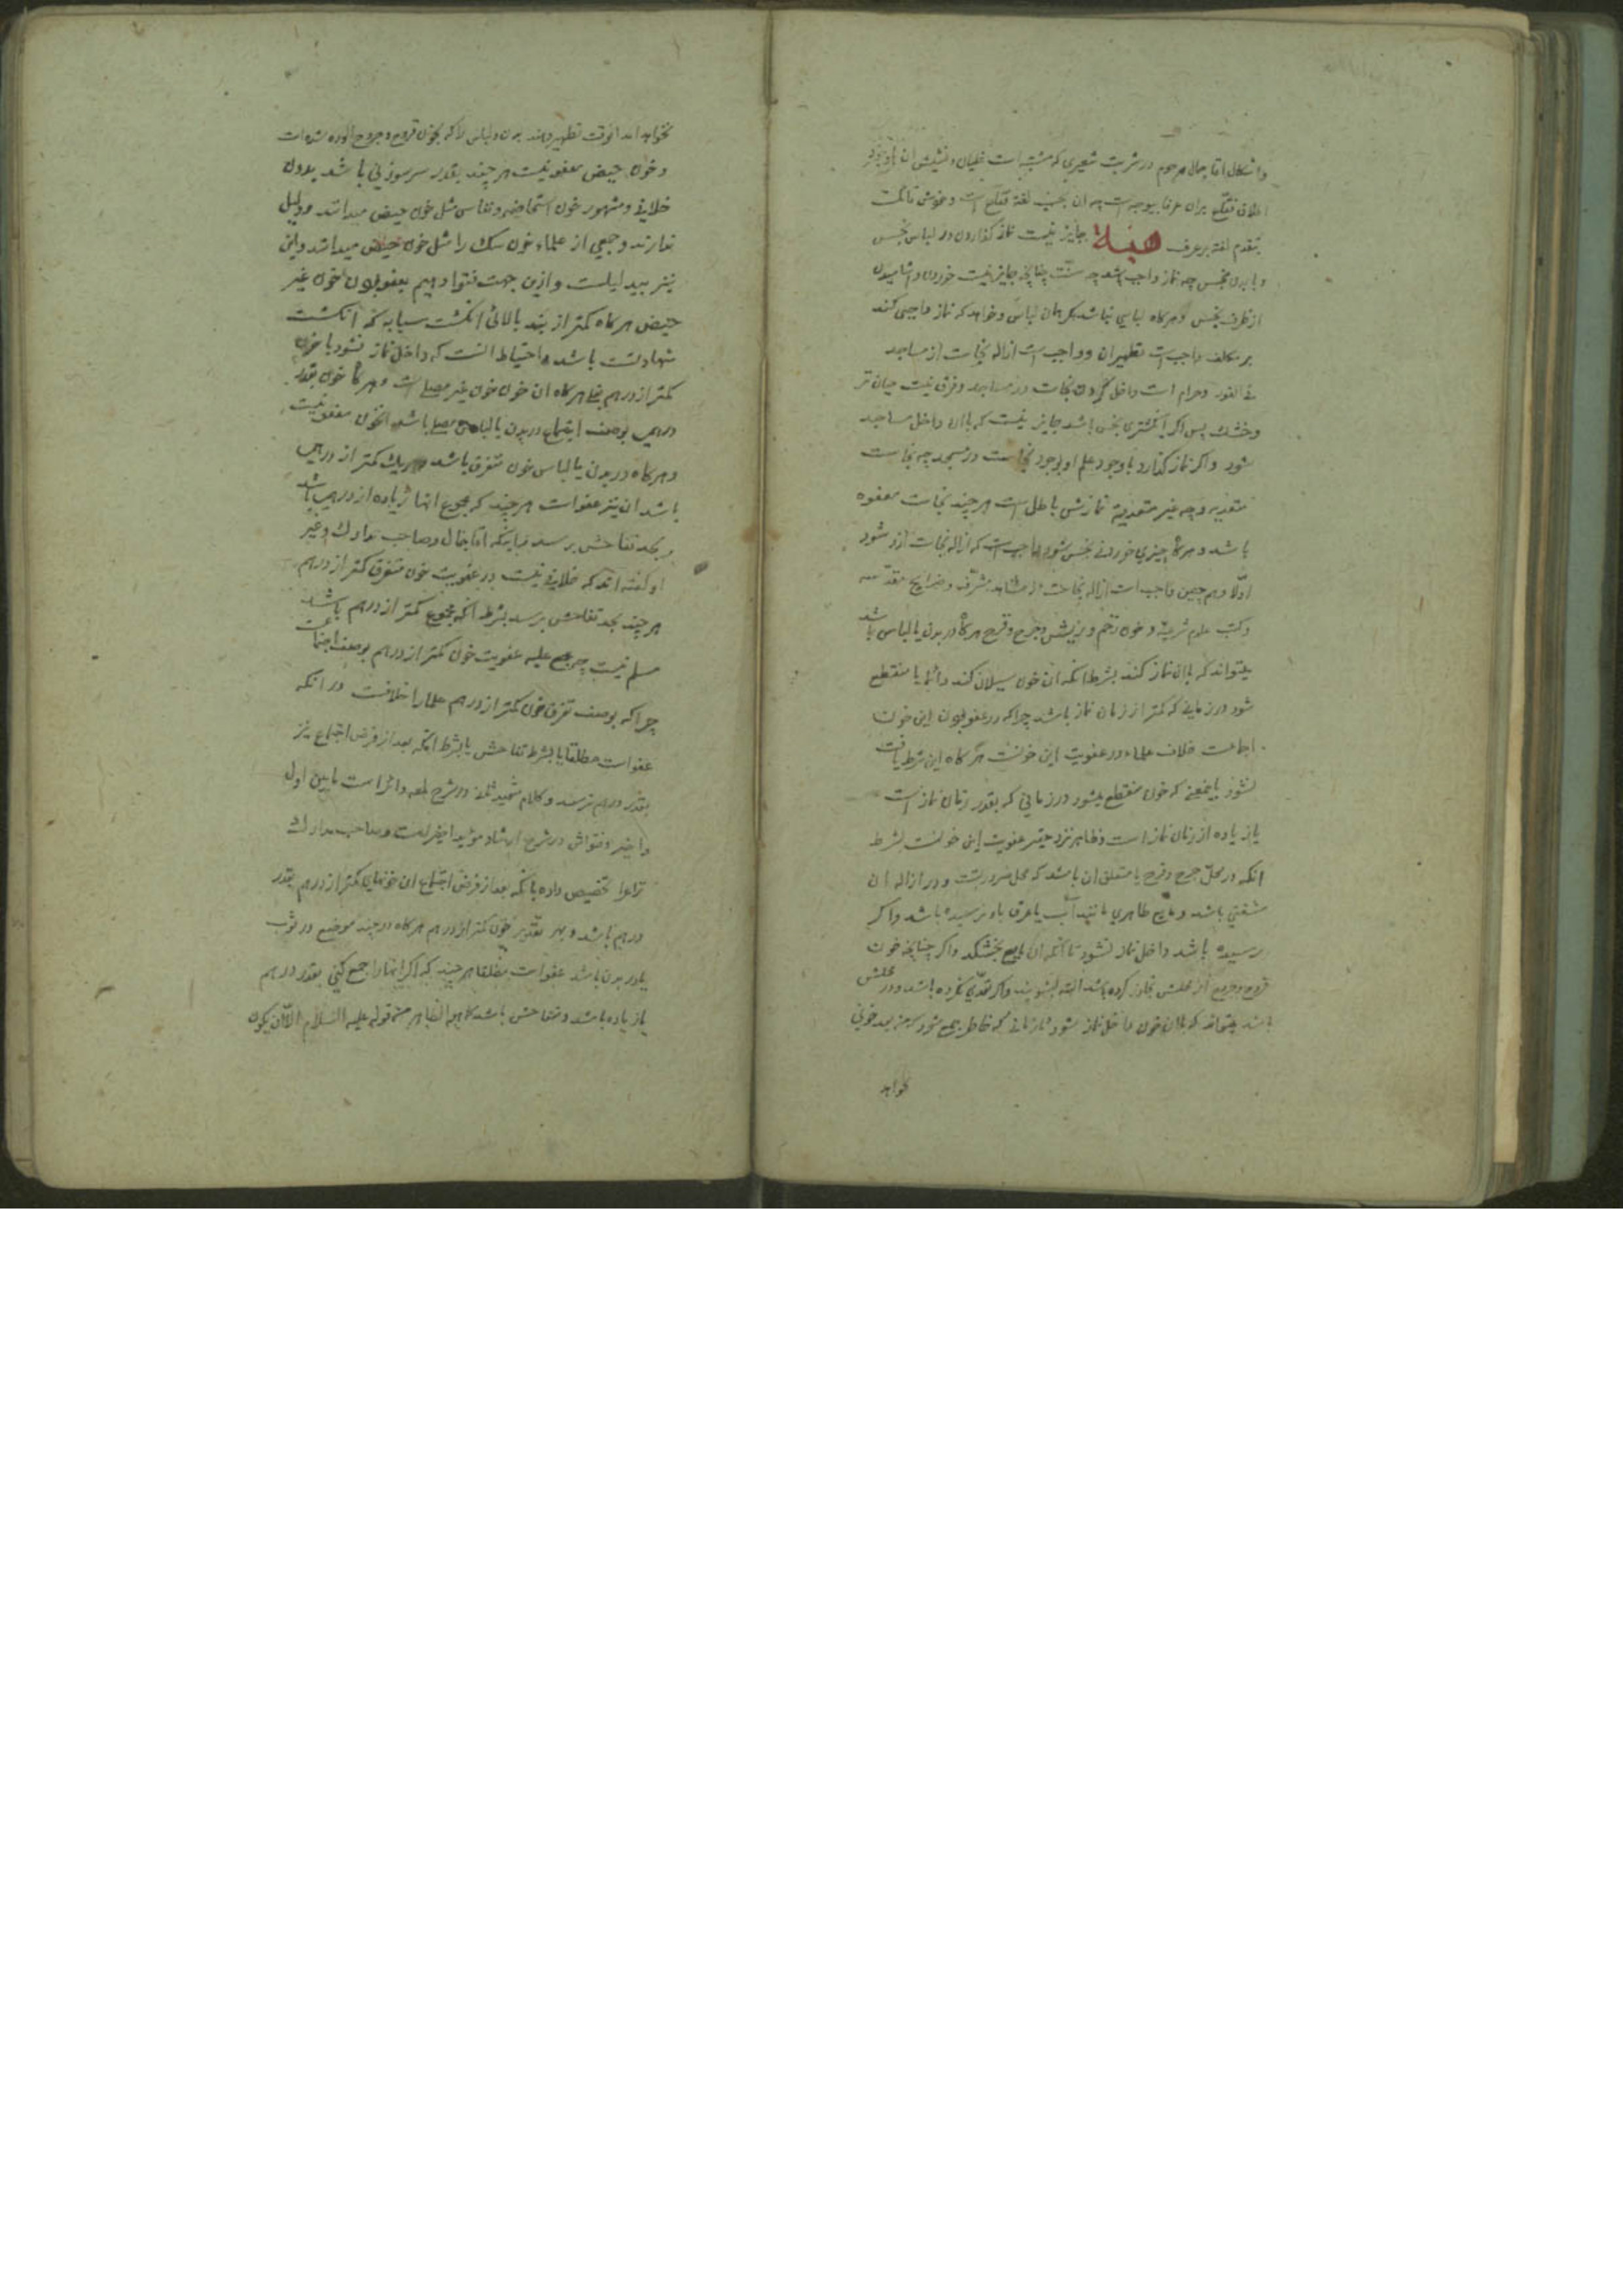 و اشکال اقا جمال مرحوم در شربت شعیری که مشتبه است غلیان و نشیش ان با وجود
اطلاق فقاع بران عرفا بیوجه است چه ان بحسب لغة فقاع است و خوش نا گفت
بتقدم لغة بر عرف جایز نیست نماز گذاردن در لباس نجس
و با بدن نجس چه نماز واجب باشد چه سنت چنانچه جایز نیست خوردن و اشامیدن
از ظرف نجس و هرکاه لباسی نباشد مکر همان لباس و خواهد که نماز واجبی کند
بر مکلف واجب است تطهیر ان و واجب است ازاله نجاست از مساجد
فے الفور و حرام است داخل کردن نجاست در مساجد و فرق نیست میان تر
و خشك پس اکر انکشتری نجس باشد جایز نیست که با ان داخل مساجد
شود و اکر نماز کذارد با وجود علم او بوجود نجاست در مسجد چه نجاست
متعدیه و چه غیر متعدیة نمازش باطل است هر چند نجاست معفوه
باشد و هرکاه چیزی خوردنے نجس شود واجب است که ازاله نجاست ازو شود
اولا و هم چنین واجب است ازاله نجاست از مشاهد مشرفه و ضرایح مقدسه
و کتب علوم شرعیة و خون زخم و ریش و جرح و قرح هرکاه در بدن یا لباس باشد
میتواند که با ان نماز کند بشرط انکه ان خون سیلان کند دائما یا منقطع
شود در زمانے که کمتر از زمان نماز باشد چرا که در عفو بودن این خون
اجماعست خلاف علماء در عفویت این خونست هرکاه این شرط یافت
نشود بایمعنے که خون منقطع میشود در زمانی که بقدر زمان نماز است
یا زیاده از زمان نماز است و ظاهر نزد حقیر عفویت این خونست بشرط
انکه در محل جرح و قرح یا متعلق ان باشد که محل ضرورتست و در ازاله ان
مشقتی باشد و مایع طاهری مانند آب یا عرق باو نرسیده باشد و اکر
رسیده باشد داخل نماز نشود تا انکه ان مایع بخشکد و اکر چنانچه خون
قروح و جروح از محلش تجاوز کرده باشد البته بشویند و اکر تعدی نکرده باشد و در محلش
باشد میتواند که با ان خون داخل نماز شود تا زمانے که خاطر جمع شود که من بعد خونی
خواهد
نخواهد امد انوقت تطهیر دهند بدن و لباس را که بخون قروح و جروح الوده شده است
و خون حیض معفو نیست هر چند بقدر سر سوزنی باشد بدون
خلافے و مشهور خون استحاضه و نفاس مثل خون حیض میدانند و دلیل
ندارند و جمعی از علماء خون سك را مثل خون حیض میدانند و این
نیز بیدلیلست و ازین جهت فتوا دهیم بعفو بودن خون غیر
حیض هرکاه کمتر از بند بالائی انکشت سبابه که انکشت
شهادتست باشد و احتیاط انست که داخل نماز نشود با خون
کمتر از درهم بغلے هرکاه ان خون خون غیر مصلے است و هرکاه خون بقدر
درهمی بوصف اجتماع در بدن یا لباس مصلے باشد انخون معفو نیست
و هرکاه در بدن یا لباس خون متفرق باشد و هریك کمتر از درهمی
باشد ان نیز عفوات هر چند که مجموع انها زیاده از درهمی باشد
و بحد تفاحش برسد چنانکه اقا جمال و صاحب مدارك و غیر
او کفته اند که خلافے نیست در عفویت خون متفرق کمتر از درهم
هر چند بحد تفاحش برسد بشرط انکه مجموع کمتر از درهم باشد
مسلم نیست چه مجمع علیه عفویت خون کمتر از درهم بوصف اجتماعست
چرا که بوصف تفرق خون کمتر از درهم علما را خلافست در انکه
عفوات مطلقا یا بشرط تفاحش یا بشرط انکه بعد از فرض اجتماع نیز
بقدر درهم نرسد و کلام شهید ثانے در شرح لمعه دائر است مابین اول
و اخیر و فتواش در شرح ارشاد مؤید اخیر است و صاحب مدارك
نزاع را تخصیص داده بانکه بعد از فرض اجتماع ان خونهای کمتر از درهم بقدر
درهم باشد و بهر تقدیر خون کمتر از درهم هرکاه در چند موضع در ثوب
یا در بدن باشد عفوات مطلقا هر چند که اکر انها را جمع کنی بقدر درهم
یا زیاده باشد و متفاحش باشد کما هو الظاهر من قوله علیه السلام الا ان یکون